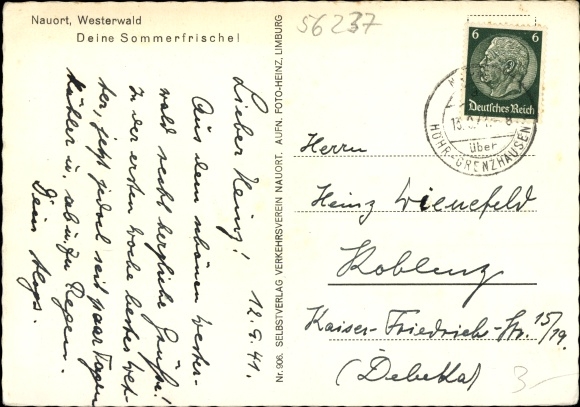 Nauort, Westerwald
Deine Sommerfrische!
56237
12.9.41.
Lieber Heinz!
Aus dem schönen Wester-
wald recht herzliche Grüße!
In der ersten Woche bestes Wet-
ter, jetzt jedoch seit paar Tagen
kühler u. ab u. zu Regen.
Dein
Nr. 906. SELBSTVERLAG VERKEHRSVEREIN NAUORT. AUFN. FOTO-HEINZ, LIMBURG
6 6
Deutsches Reich
über
HÖHR-GRENZHAUSEN
Herrn
Heinz Wienefeld
Koblenz
Kaiser-Friedrich-Str. 15/19.
(Debeka)
3-